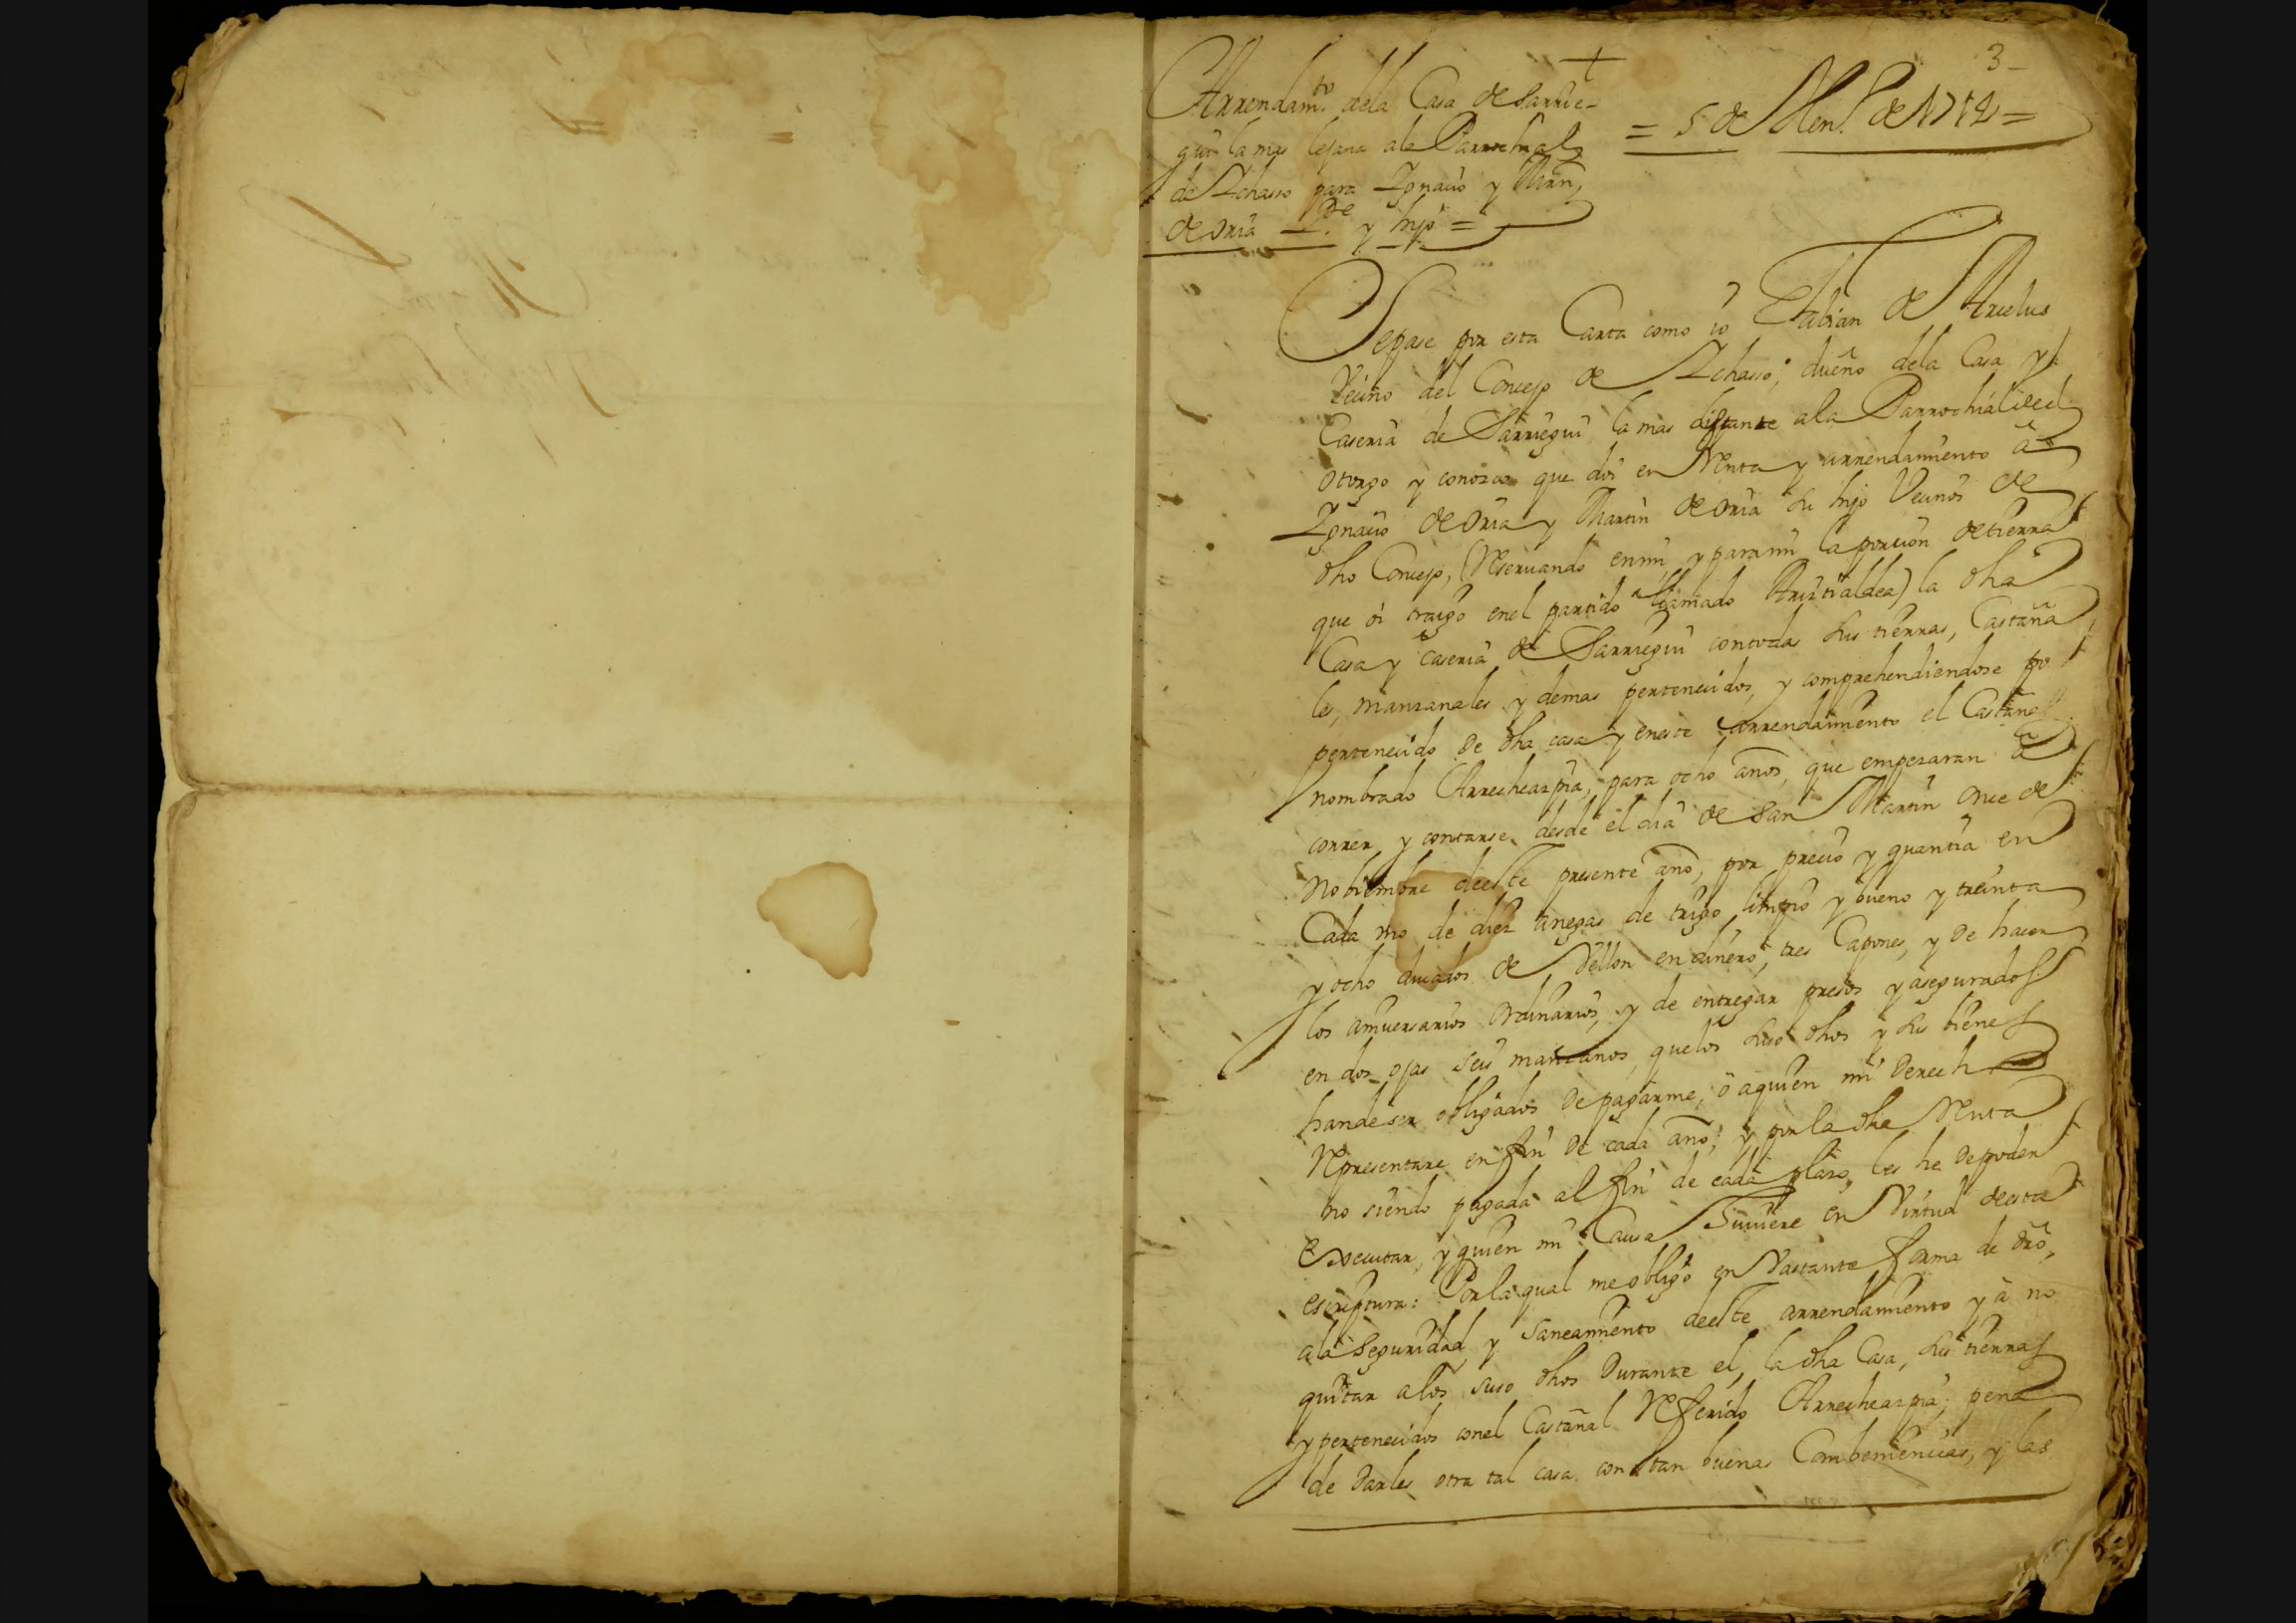 +
3
Arrendam.to dela Casa de Sarrie-
gui la mas lejana ala Parrochial
de Ichasso para Ignacio y Mrn
de oria P.e y hijo =
= 5 de Hen.o de 1712 =
Sepase por esta Carta como io Fabian de Arcelus
Vecino del Concejo de Ichasso, dueño dela Casa y
Caseria de Sarriegui la mas distante ala Parrochial de el
otorgo y conozco que doi en Renta y arrendamiento â
Ignacio de Oria y Martin de Oria su hijo Vecinos de
dho Concejo, (Reservando en mi, y para mi la porcion de tierra
que oi traigo enel partido llamado Aruztialdea) la dha
Casa y caseria de Sarriegui con todas sus tierras, Castaña
les, manzanales y demas pertenecidos, y comprehendiendose por
pertenecido de dha casa y en este arrendamiento el Castañal
nombrado Arrecheazpia, para ocho años, que empezaran â
correr y contarse desde el dia de San Martin once de
Nobiembre deeste presente año, por precio y quantia en
Cada vno de diez anegas de trigo limpio y bueno y treinta
y ocho ducados de Vellon en dinero, tres Capones, y de hacer
los aniversarios ordinarios, y de entregar presos y asegurados
en dos ojas seis manzanos, quelos suso dhos y sus bienes
hande ser obligados de pagarme, ô aquien mi Derech
Representare en fin de cada año; y por la dha Renta
no siendo pagada al fin de cada plazo, les he de poder
Executar, y quien mi Causa Huviere en Virtud de esta
escriptura: Por la qual me obligo en Vastante forma de dro,
ala seguridad y saneamiento deeste arrendamiento y â no
quitar alos suso dhos Durante el, la dha Casa, sus tierras
y pertenecidos conel Castañal Referido Arrecheazpia, pena
de Darles otra tal casa con tan buenas Combeniencias, y las